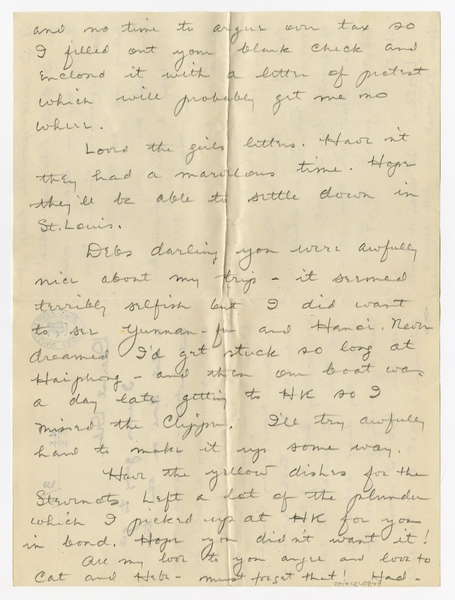 and no time to argue over tax so
I filled out your blank check and
enclosed it with a letter of protest
which will probably get me no
where.
Loved the girls letters. Have n't
they had a marvelous time. Hope
they'll be able to settle down in
St. Louis.
Debs darling you were awfully
nice about my trip - it seemed
terribly selfish but I did want
to see Yunnan-fu and Hanoi. Never
dreamed I'd get stuck so long at
Haiphong - and then our boat was
a day late getting to HK so I
missed the Clipper. I'll try awfully
hard to make it up some way.
Have the yellow dishes for the
Left a lot of the plunder
which I picked up at HK for you
in bond. Hope you didn't want it!
All my love to you and love to
Cat and - must forget that! Had -